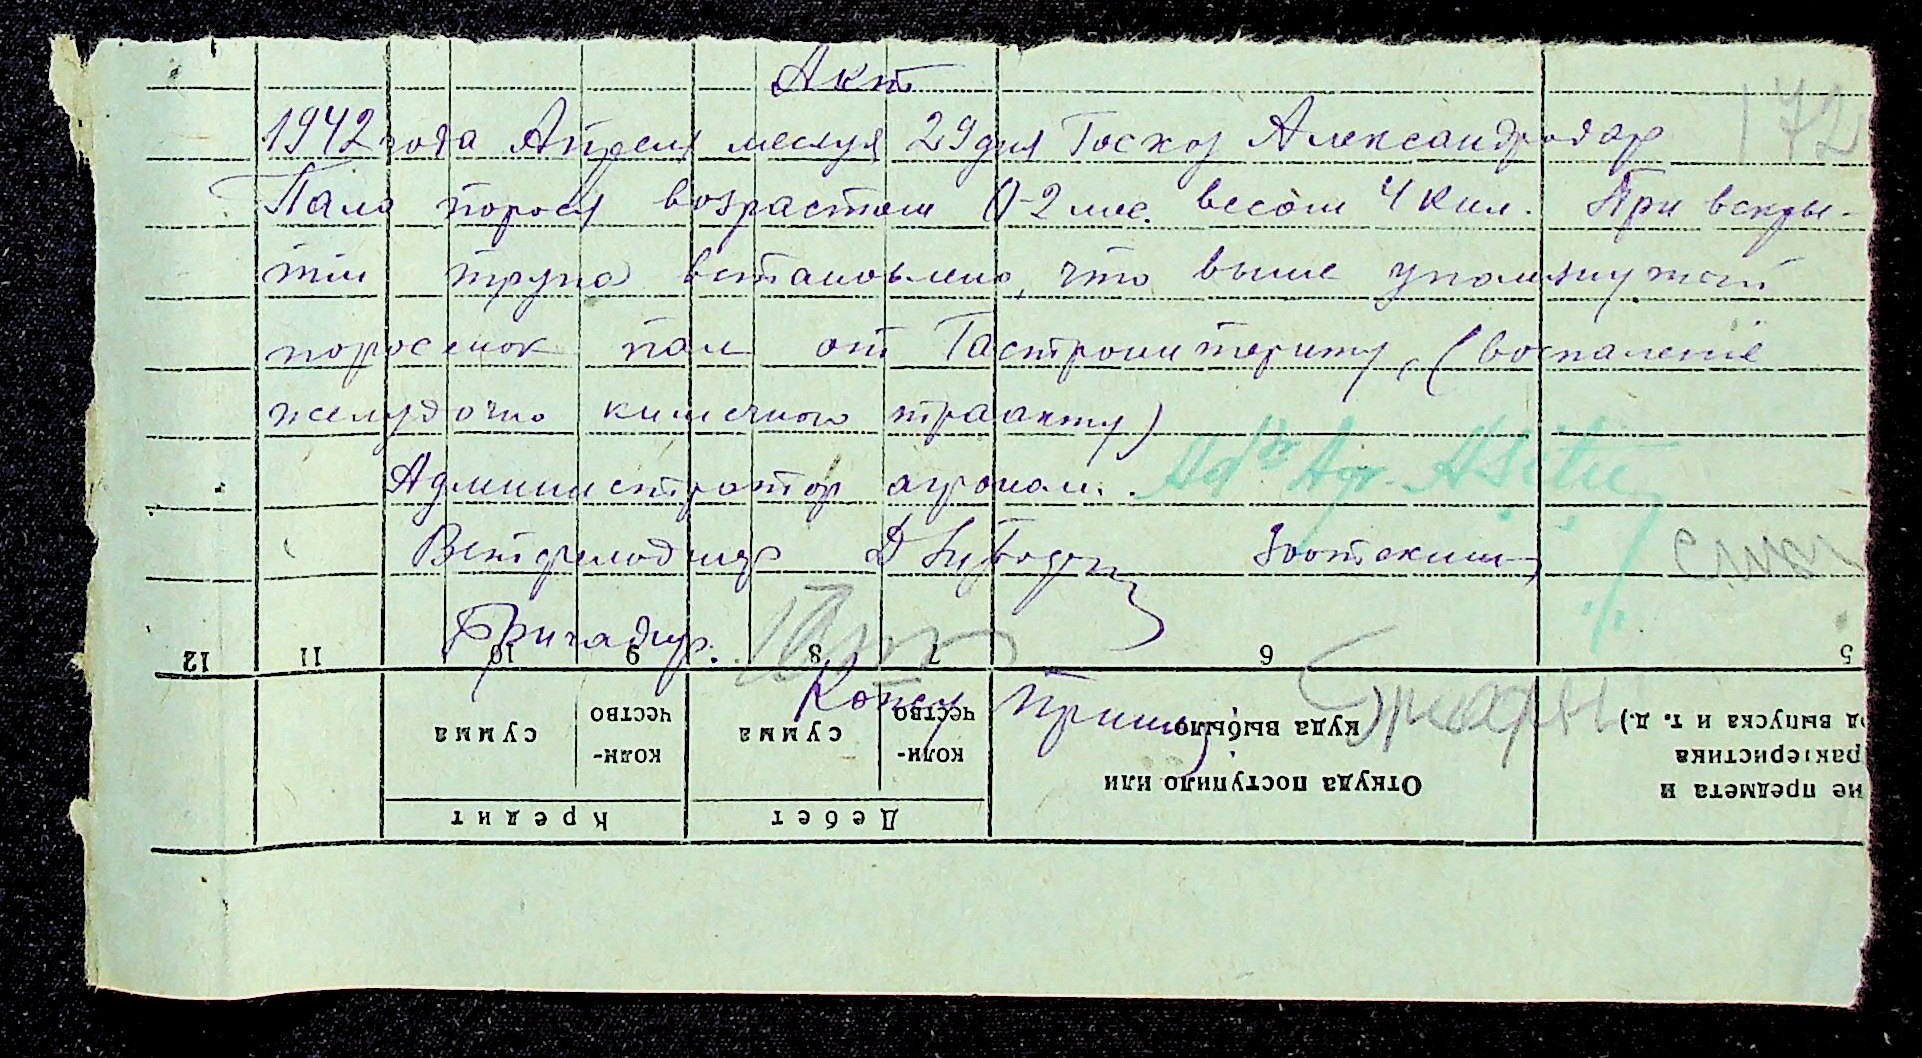 Акт
172
1942 года Апреля месяця 29 дня Госхоз Александродар
Пала порося возрастом 0-2 мес. весом 4 кил. При вскры-
тии трупа встановлено, что выше упомянутый
поросенок пал от Гастроинтериту, (воспаление
желудочно кишечного траакту)
Администратор агроном. Adʳ Agr.
Ветфельдшер Зоотехник
Бригадир.
12 11 10 9 8 7 6 5
Копия
сумма количество сумма количество Откуда поступило или куда выбыло
не предмета и рактеристика од выпуска и т. д.)
Кредит Дебет